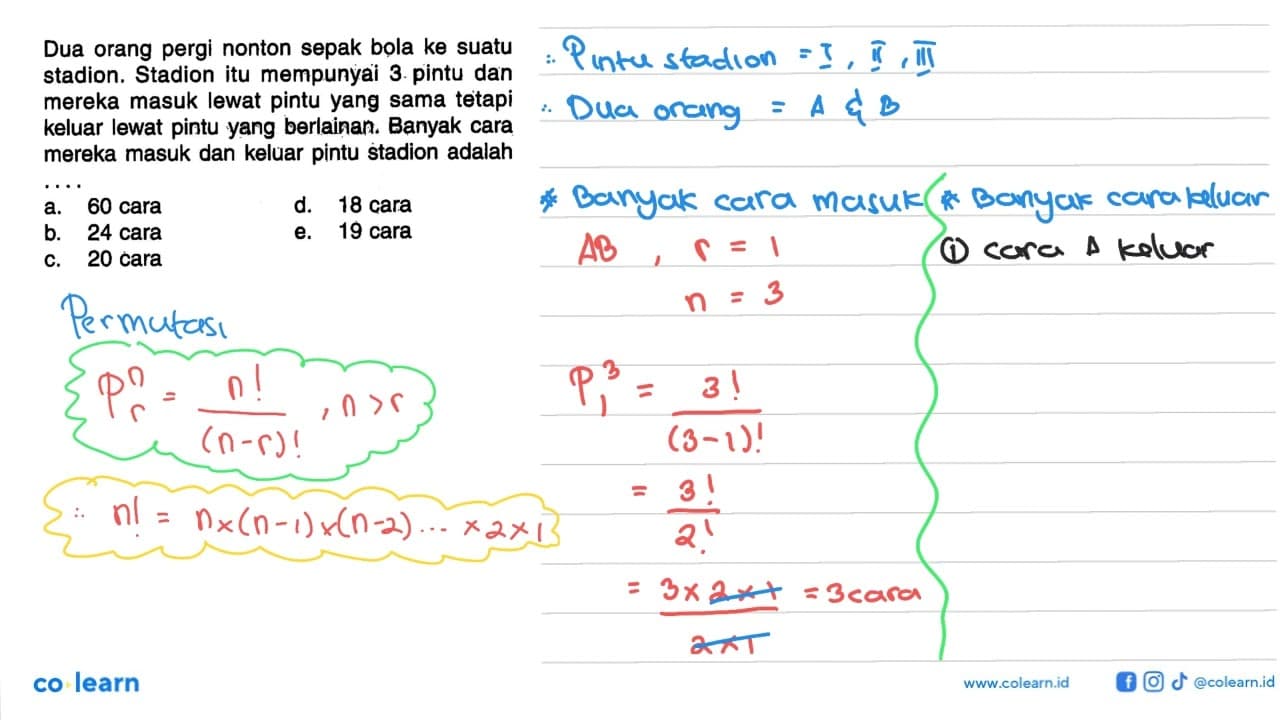 Dua orang pergi nonton sepak bola ke suatu
stadion. Stadion itu mempunyai 3 pintu dan
mereka masuk lewat pintu yang sama tetapi
keluar lewat pintu yang berlainan. Banyak cara
mereka masuk dan keluar pintu stadion adalah
....
a. 60 cara
b. 24 cara
c. 20 cara
d. 18 cara
e. 19 cara
Permutasi
P^n_r = n!/(n-r)! , n > r
∴ n! = n×(n-1)×(n-2)... ×2×1
∴ Pintu stadion = I, II, III
∴ Dua orang = A & B
* Banyak cara masuk
AB , r = 1
n = 3
P^3_1 = 3!/(3-1)!
= 3!/2!
= 3×2×1/2×1 = 3 cara
* Banyak cara keluar
① cara A keluar
co learn
www.colearn.id
@colearn.id